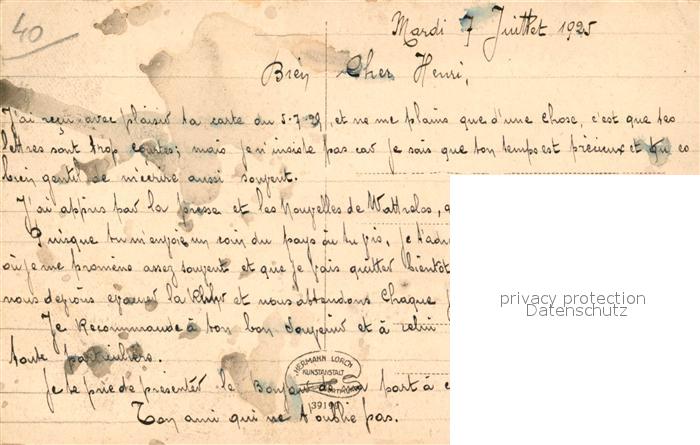 40
Mardi 7 Juillet 1925
Bien Cher Henri,
J'ai reçu avec plaisir ta carte du 5-7-25, et ne me plains que d'une chose, c'est que tes
lettres sont trop courtes; mais je n'insiste pas car je sais que ton temps est précieux et que
bien gentil de m'écrire aussi souvent.
J'ai appris par la presse et les Nouvelles de Wattrelos,
Puisque tu m'envoie un coin du pays où tu vis, je
où je me promène assez souvent et que je vais quitter bientôt
nous devons évacuer la Ruhr et nous attendons chaque
Je Recommande à ton bon Souvenir et à celui
toute particulière.
Je te prie de présenter le Bonjour de ma part à
Ton ami qui ne t'oublie pas.
HERMANN LORCH
KUNSTANSTALT
DORTMUND
privacy protection
Datenschutz